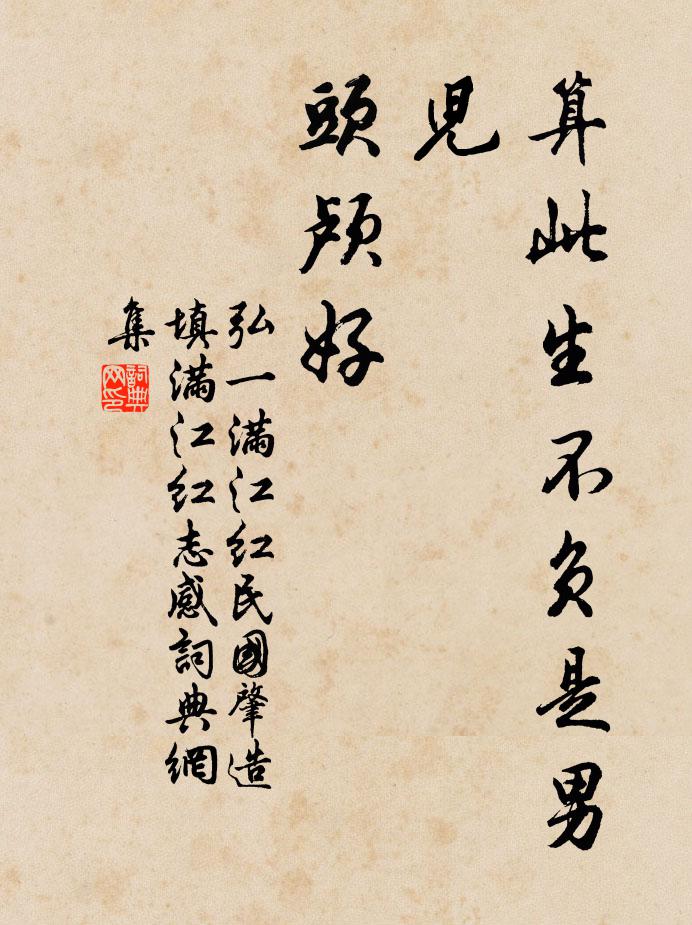 算此生不负是男
児
頭颅好
弘一满江红民國肇造
填满江红志感詞典網
集
詞典
网印